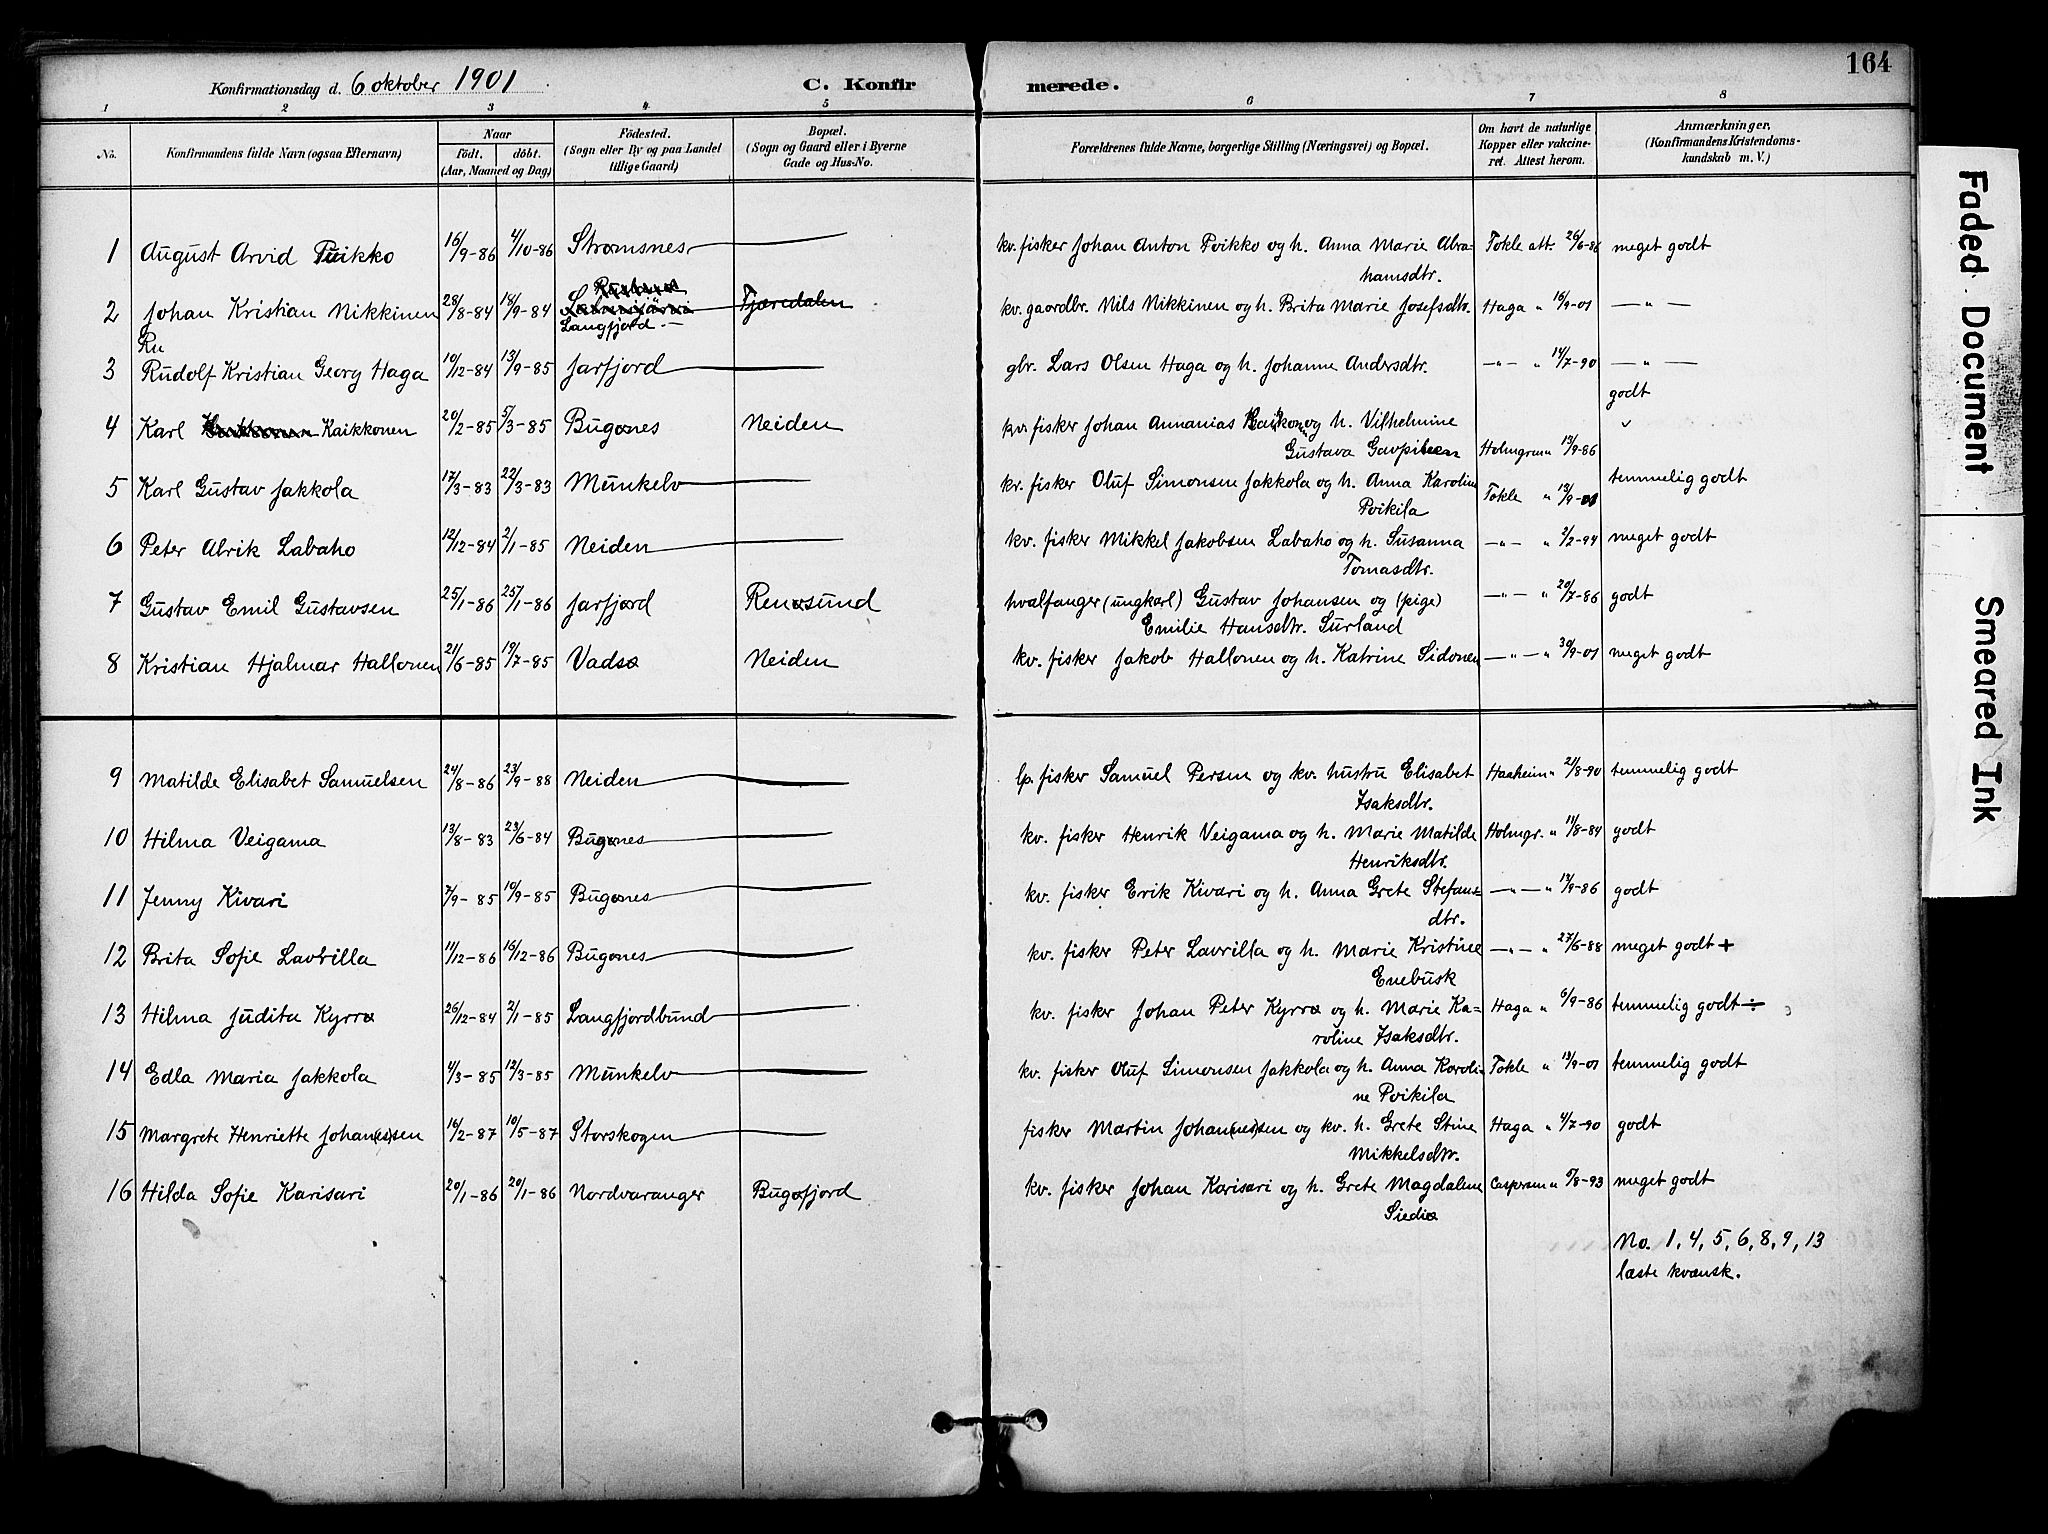 164
Konfirmationsdag d. 6 oktober 1901. C. Konfirmerede.
1 2 3 4 5 6 7 8
No. Konfirmandens fulde Navn (ogsaa Efternavn) Naar födt. döbt. (Aar, Maaned og Dag) Födested. (Sogn eller By og paa Landet tillige Gaard) Bopæl. (Sogn og Gaard eller i Byerne Gade og Hus-No. Forældrenes fulde Navne, borgerlige Stilling (Næringsvei) og Bopæl. Om havt de naturlige Kopper eller vakcineret. Attest herom. Anmærkninger. (Konfirmandens Kristendomskundskab m. V.)
1 August Arvid Puikko 16/9-86 4/10-86 Strømsnes — kv. fisker Johan Anton Poikko og h. Anna Marie Abra- Tokle att. 26/6-86 meget godt
hamsdtr.
2 Johan Kristian Nikkinen 28/8-84 18/9-84 Langfjord.— Fjæredalen kv. gaardbr. Nils Nikkinen og h. Brita Marie Josefsdtr. Haga " 16/9-01 — " —
Ru
3 Rudolf Kristian Georg Haga 10/12-84 13/9-85 Jarfjord — gbr. Lars Olsen Haga og h. Johanne Andersdtr. —"— " 14/7-90 — " —
godt
4 Karl Kaikkonen 20/2-85 5/3-85 Bugønes Neiden kv. fisker Johan Annanias og h. Vilhelmine
Gustava Holmgren " 13/9-86
5 Karl Gustav Jakkola 17/3-83 22/3-83 Munkelv — kv. fisker Oluf Simonsen Jakkola og h. Anna Karolin Tokle " 13/9-01 temmelig godt
Poikila
6 Peter Alrik Labaho 12/12-84 2/1-85 Neiden — kv. fisker Mikkel Jakobsen Labaho og h. Susanna —"— " 2/2-94 meget godt
Tomasdtr.
7 Gustav Emil Gustavsen 25/1-86 25/1-86 Jarfjord Renøsund hvalfanger (ungkarl) Gustav Johansen og (pige) —"— " 20/7-86 godt
Emilie Hansdtr. Surland
8 Kristian Hjalmar Hallonen 21/6-85 19/7-85 Vadsø Neiden kv. fisker Jakob Hallonen og h. Katrine Sidonen —"— " 30/9-01 meget godt
9 Matilde Elisabet Samuelsen 24/8-86 23/9-88 Neiden — lp. fisker Samuel Persen og kv. hustru Elisabet Haaheim " 21/8-90 temmelig godt
Isaksdtr.
10 Hilma Veigama 13/8-83 23/6-84 Bugønes — kv. fisker Henrik Veigama og h. Marie Matilde Holmgr. " 11/8-84 godt
Henriksdtr.
11 Jenny Kivari 7/9-85 10/9-85 Bugønes — kv. fisker Erik Kivari og h. Anna Grete Stefans- —"— " 13/9-86 godt
dtr.
12 Brita Sofie Lavrilla 11/12-86 16/12-86 Bugønes — kv. fisker Peter Lavrilla og h. Marie Kristine —"— " 27/6-88 meget godt +
Enebusk
13 Hilma Judita Kyrrø 26/12-84 2/1-85 Langfjordbund — kv. fisker Johan Peter Kyrrø og h. Marie Ka- Haga " 6/9-86 temmelig godt ÷
roline Isaksdtr.
14 Edla Maria Jakkola 4/3-85 12/3-85 Munkelv — kv. fisker Oluf Simonsen Jakkola og h. Anna Karoli- Tokle " 13/9-01 temmelig godt
ne Poikila
15 Margrete Henriette Johan(es)sen 16/2-87 10/5-87 Storskogen — fisker Martin Johan(nes)sen og kv. h. Grete Stine Haga " 4/7-90 godt
Mikkelsdtr.
16 Hilda Sofie Karisari 20/1-86 20/1-86 Nordvaranger Bugøfjord kv. fisker Johan Karisari og h. Grete Magdalene Caspersen " /8-93 meget godt
Siediø
No. 1, 4, 5, 6, 8, 9, 13
læste kvænsk.
Faded Document
Smeared Ink